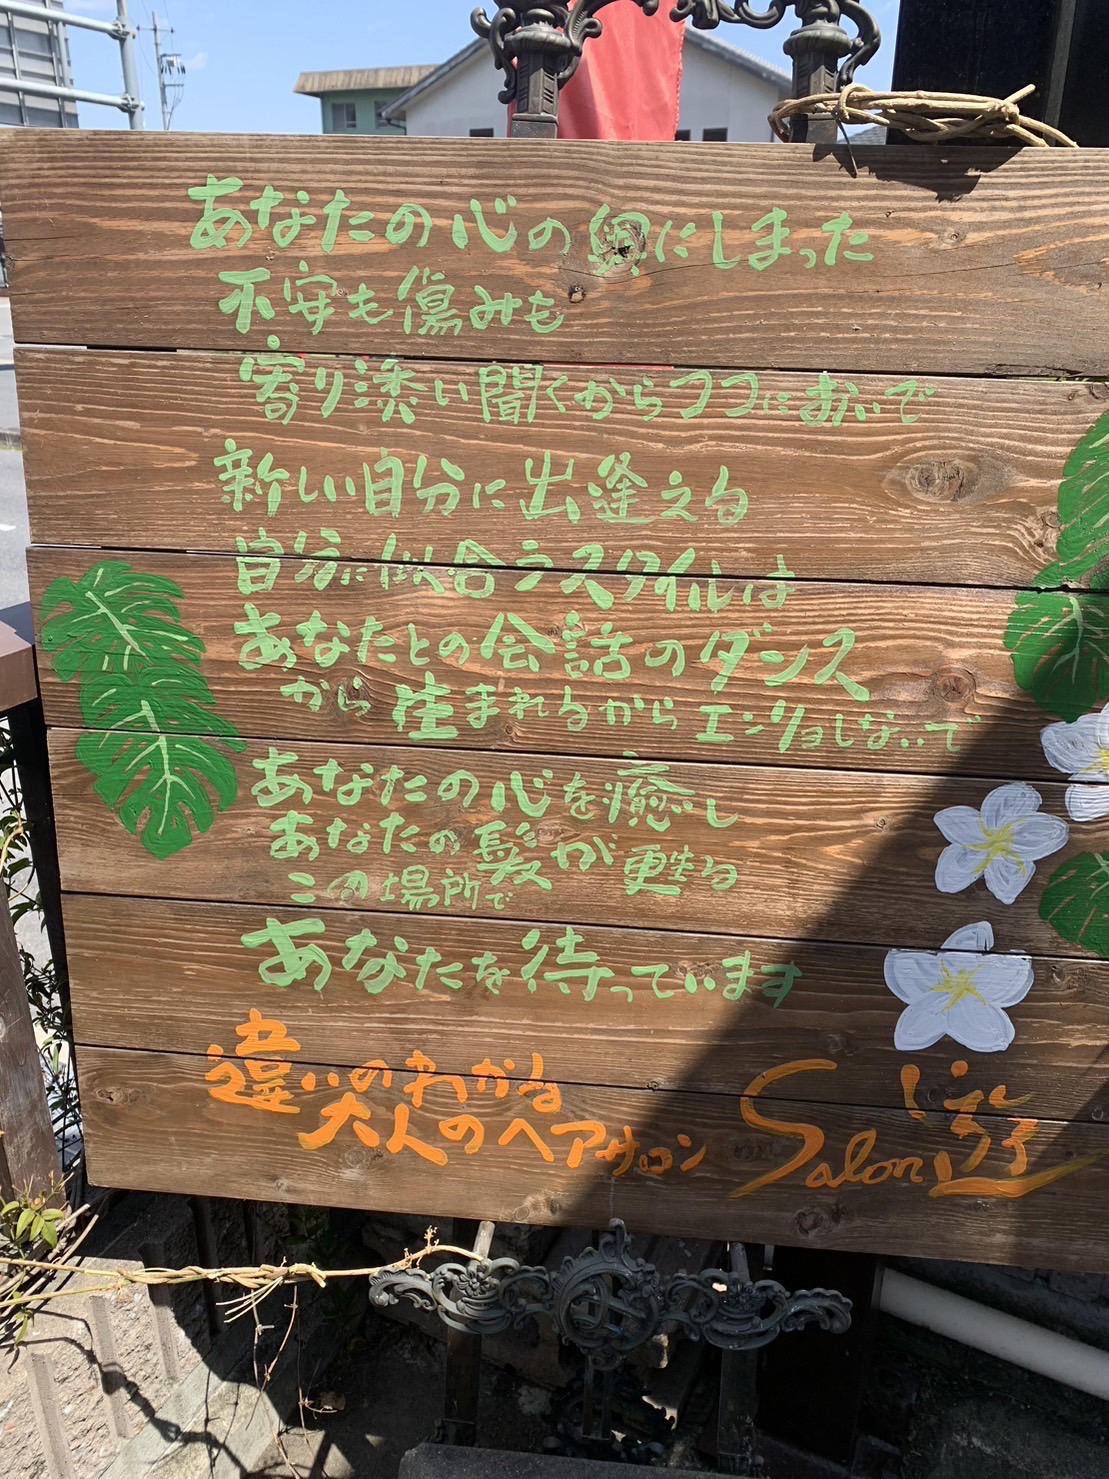 あなたの心の奥にしまった
不安も傷みも
寄り添い聞くからココにおいで
新しい自分に出逢える
自分に似合うスタイルは
あなたとの会話のダンス
から生まれるからエンリョしないで
あなたの心を癒し
あなたの髪が甦る
この場所で
あなたを待っています
違いのわかる
大人のヘアサロン Salon遊